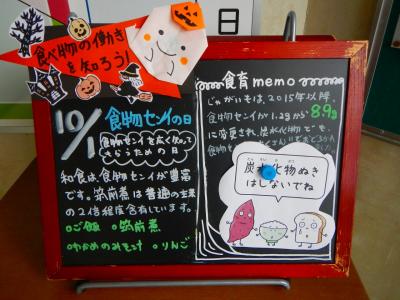 日
食べ物の働き
を知ろう!
10/1 食物センイの日
食物センイを広く知って
もらうための日
和食は、食物センイが豊富
です。筑前煮は普通の主菜
の2倍程度含有しています。
○ご飯 ○筑前煮
○わかめのみそ汁 ○りんご
食育memo
じゃがいもは、2015年以降、
食物センイが1.2gから8.9g
に変更され、炭水化物でも、
食物セ
炭水化物ぬき
はしないでね